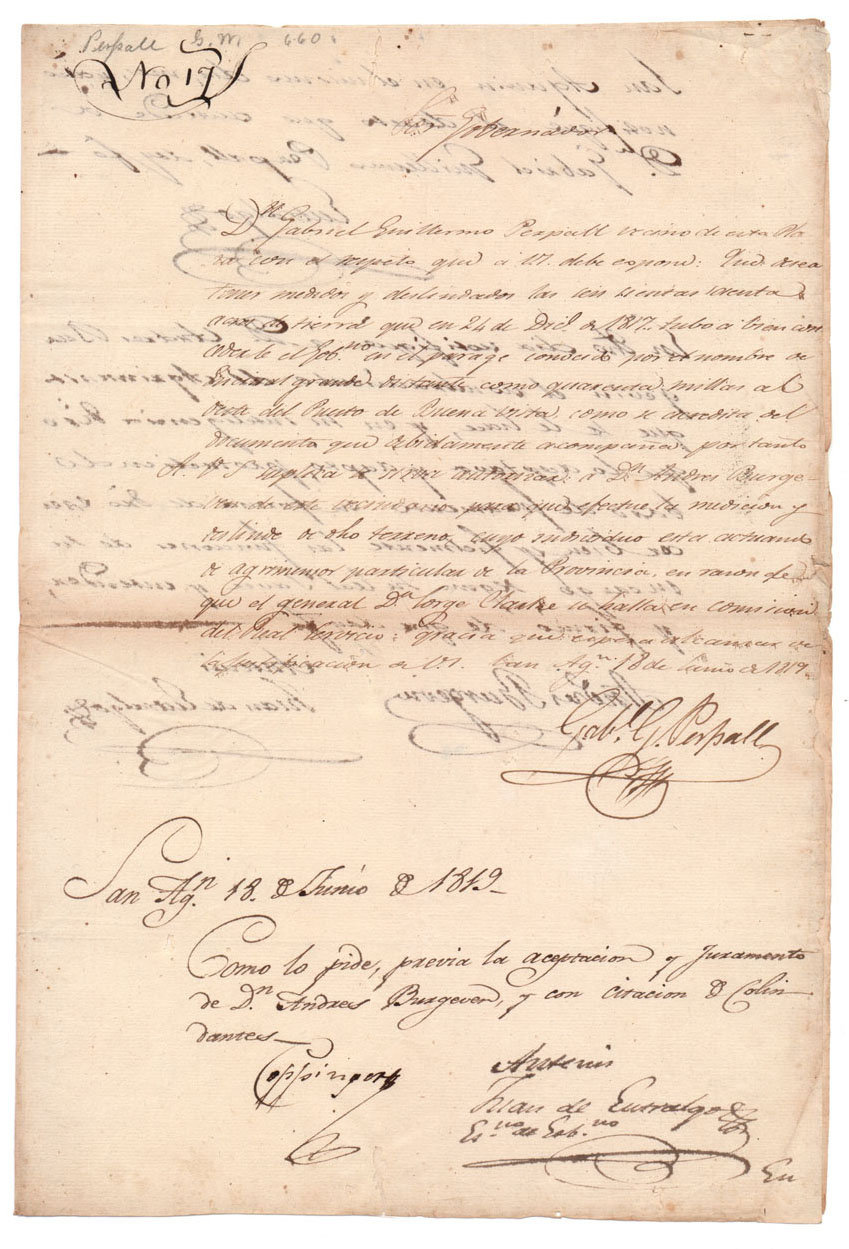 Perpall G. W. 660
No. 17
Sor. Gobernador
Dn. Gabriel Guillermo Perpall vecino de esta Pla-
za con el respeto que á V.S. debe espone: Que desea
tener medidos y deslindados las seis cientas
acres de tierra que en 24 de Dice. de 1817. tubo á bien con
cederle el Gobno. en el parage conocido por el nombre de
grande distante como quarenta millas al
oeste del Puerto de Buena vista, como se acredita del
documento que debidamente acompaña; por tanto
A. V.S. suplica se sirva autorizar á Dn. Andres Burge-
ven de este vecindario para que efectue la medicion y
deslinde de dho terreno, cuyo individuo está actuando
de agrimensor particular de la Provincia, en razon de
que el general Dn. Jorge Clarke se halla en comicion
del Real Servicio: gracia que espera alcanzar de
la justificacion de V.S. San Agn. 18 de Junio de 1819.
Gabl. G. Perpall
San Agn. 18. de Junio de 1819-
Como lo pide, previa la aceptacion y Juramento
de Dn. Andres Burgeven, y con citacion de Colin
dantes-
Coppinger
Antemi
Juan de Entralgo
Esno. de Gobno.
En